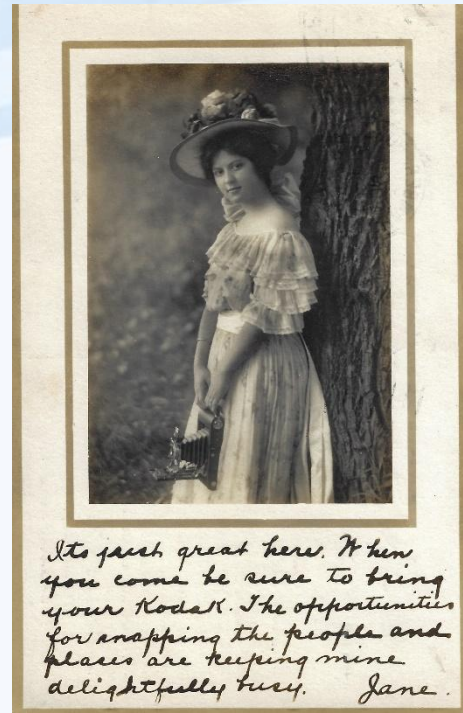 Its just great here. When
you come be sure to bring
your Kodak. The opportunities
for snapping the people and
places are keeping mine
delightfully busy. Jane.